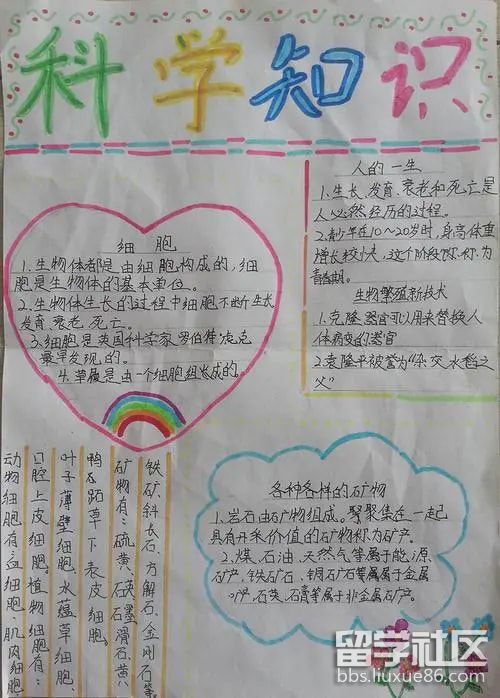 科学知识
细胞
1.生物体都是由细胞构成的,细
胞是生物体的基本单位。
2.生物体生长的过程中细胞不断生长
发育、衰老、死亡。
3.细胞是英国科学家罗伯特·虎克
最早发现的。
4.草履是由一个细胞组长成的。
人的一生
1.生长、发育、衰老和死亡是
人必然经历的过程。
2.青少年在10~20岁时,身高体重
增长校快,这个阶段称称为
青春期。
生物繁殖新技术
1.克隆器官可以用来替换人
体病变的器官
2.袁隆平被誉为“杂交水稻之
父”
各种各样的矿物
1.岩石由矿物组成。聚聚集在一起
具有开采价值的矿物称为矿产。
2.煤、石油、天然气等属于能源
矿产,铁矿石、铜矿石等属属于金属
石英、石膏等属于非金属矿产。
铁矿、斜长石、方解石、金刚石等
矿物有:硫黄、石英石墨滑石、黄
鸭石跖草下表皮细胞。
叶子薄壁细胞、水蕴草细胞、
口腔上皮细胞。植物细胞有:
动物细胞有:血细胞、肌肉细胞
留学社区
bbs.liuxue86.com